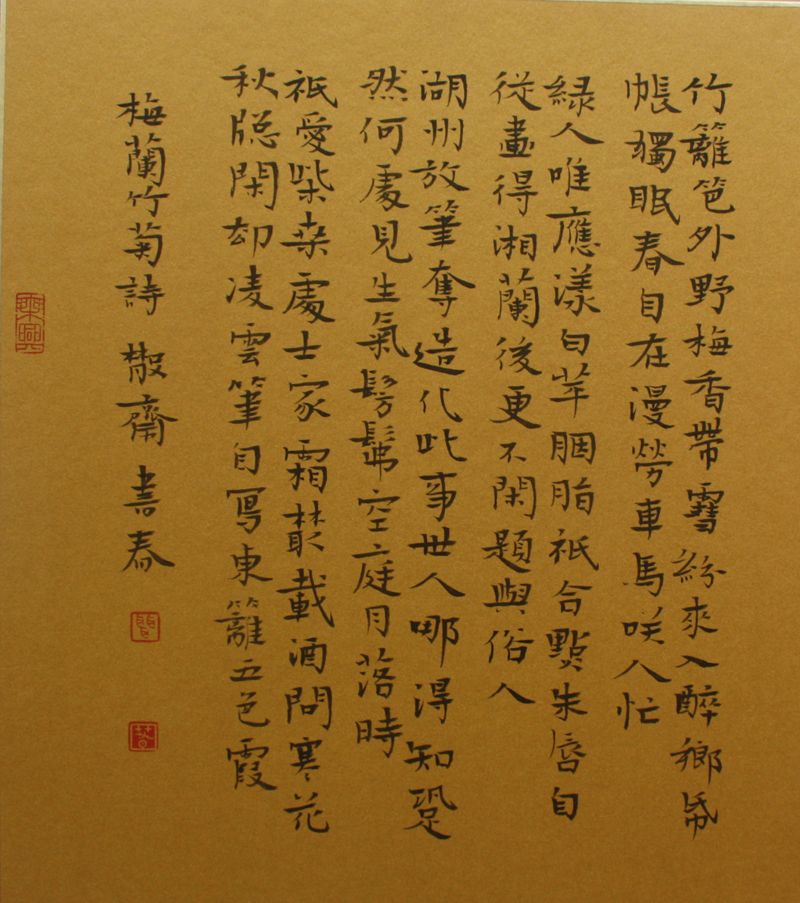 竹籬笆外野梅香帶雪紛來入醉鄉帋
帳獨眠春自在漫勞車馬咲人忙
緑人唯應漾白苹胭脂祇合點朱唇自
從畫得湘蘭後更不閑題與俗人
湖州放筆奪造化此事世人哪得知跫
然何處見生氣髣髴空庭月落時
祇愛柴桒處士家霜叢載酒問寒花
秋牕閑却凌雲筆自寫東籬五色霞
梅蘭竹菊詩 齋書春